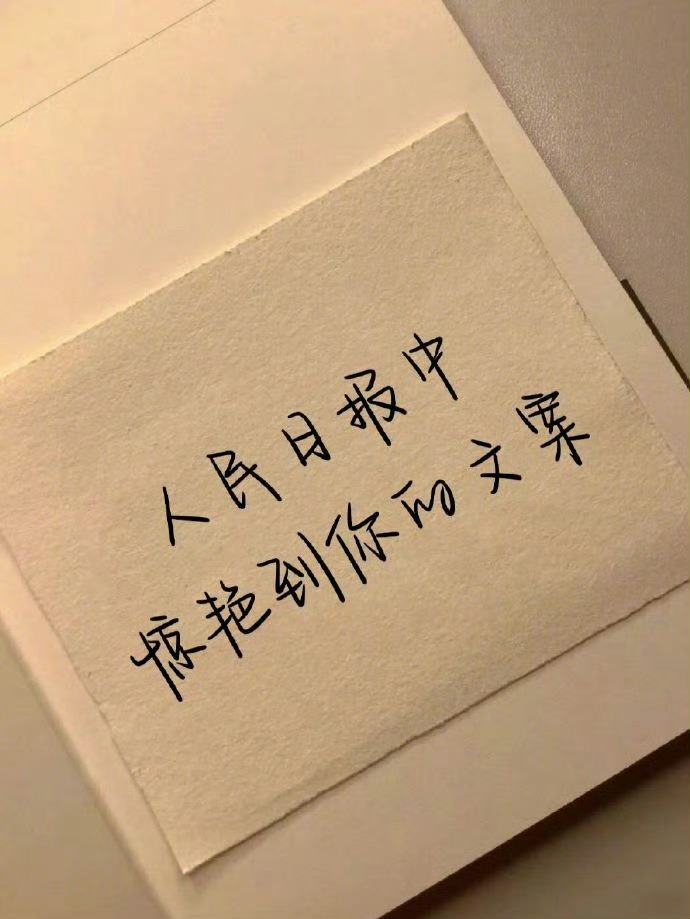 人民日报中
惊艳到你的文案